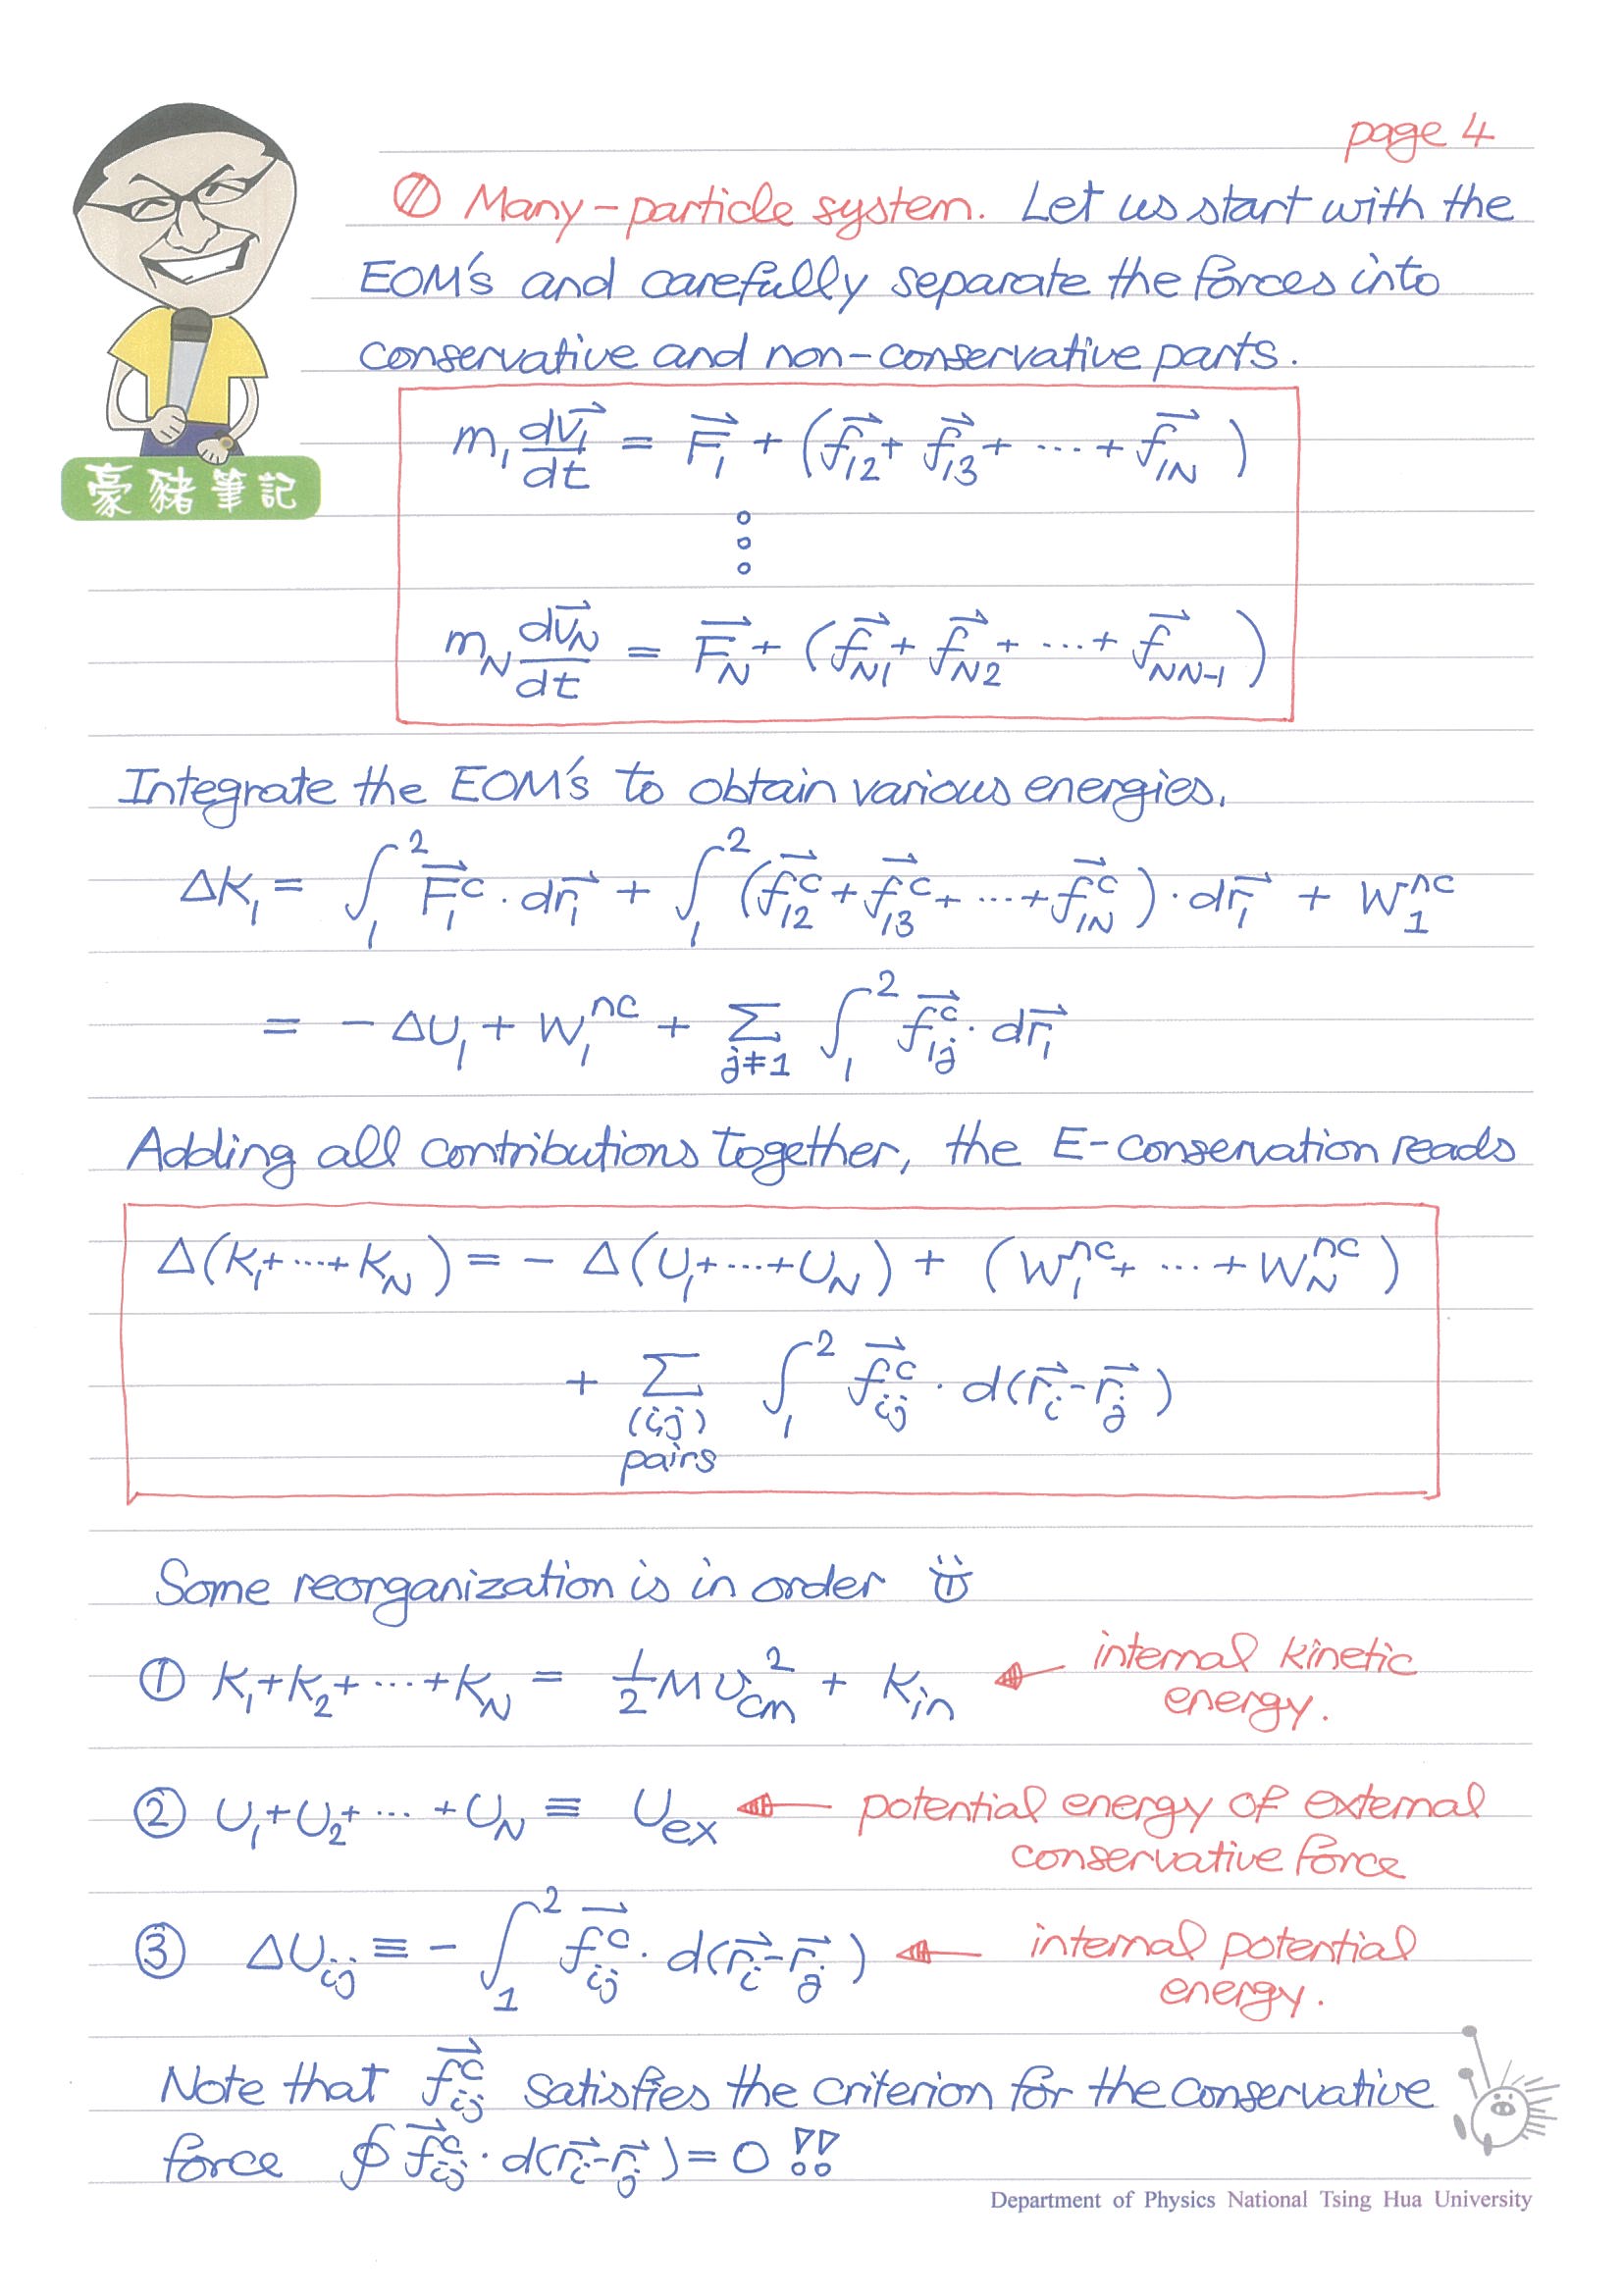 page 4
Many-particle system. Let us start with the
EOM's and carefully separate the forces into
conservative and non-conservative parts.
豪豬筆記
m₁ dv⃗₁/dt = F⃗₁ + (f⃗₁₂ + f⃗₁₃ + ⋯ + f⃗₁N)
⋮
m_N dv⃗_N/dt = F⃗_N + (f⃗_N1 + f⃗_N2 + ⋯ + f⃗_NN-1)
Integrate the EOM's to obtain various energies.
ΔK₁ = ∫₁² F⃗₁ᶜ · dr⃗₁ + ∫₁² (f⃗₁₂ᶜ + f⃗₁₃ᶜ + ⋯ + f⃗₁Nᶜ) · dr⃗₁ + W₁ⁿᶜ
= - ΔU₁ + W₁ⁿᶜ + Σ_{j≠1} ∫₁² f⃗₁ⱼᶜ · dr⃗₁
Adding all contributions together, the E-conservation reads
Δ(K₁ + ⋯ + K_N) = - Δ(U₁ + ⋯ + U_N) + (W₁ⁿᶜ + ⋯ + W_Nⁿᶜ)
+ Σ_{(ij) pairs} ∫₁² f⃗ᵢⱼᶜ · d(r⃗ᵢ - r⃗ⱼ)
Some reorganization is in order
① K₁ + K₂ + ⋯ + K_N = ½ M v_cm² + K_in internal kinetic
energy.
② U₁ + U₂ + ⋯ + U_N ≡ U_ex potential energy of external
conservative force
③ ΔUᵢⱼ ≡ - ∫₁² f⃗ᵢⱼᶜ · d(r⃗ᵢ - r⃗ⱼ) internal potential
energy.
Note that f⃗ᵢⱼᶜ satisfies the criterion for the conservative
force ∮ f⃗ᵢⱼᶜ · d(r⃗ᵢ - r⃗ⱼ) = 0 !!
Department of Physics National Tsing Hua University